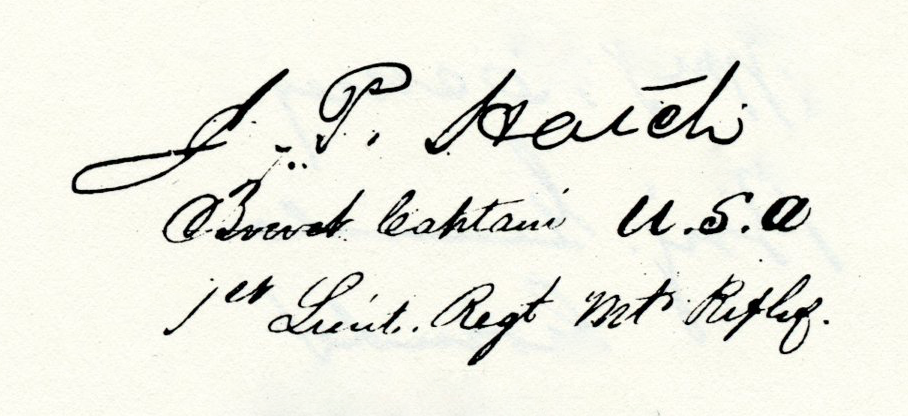 J. P. Hatch
Brevet Captain U.S.A
1st Lieut. Regt Mtd Rifles.